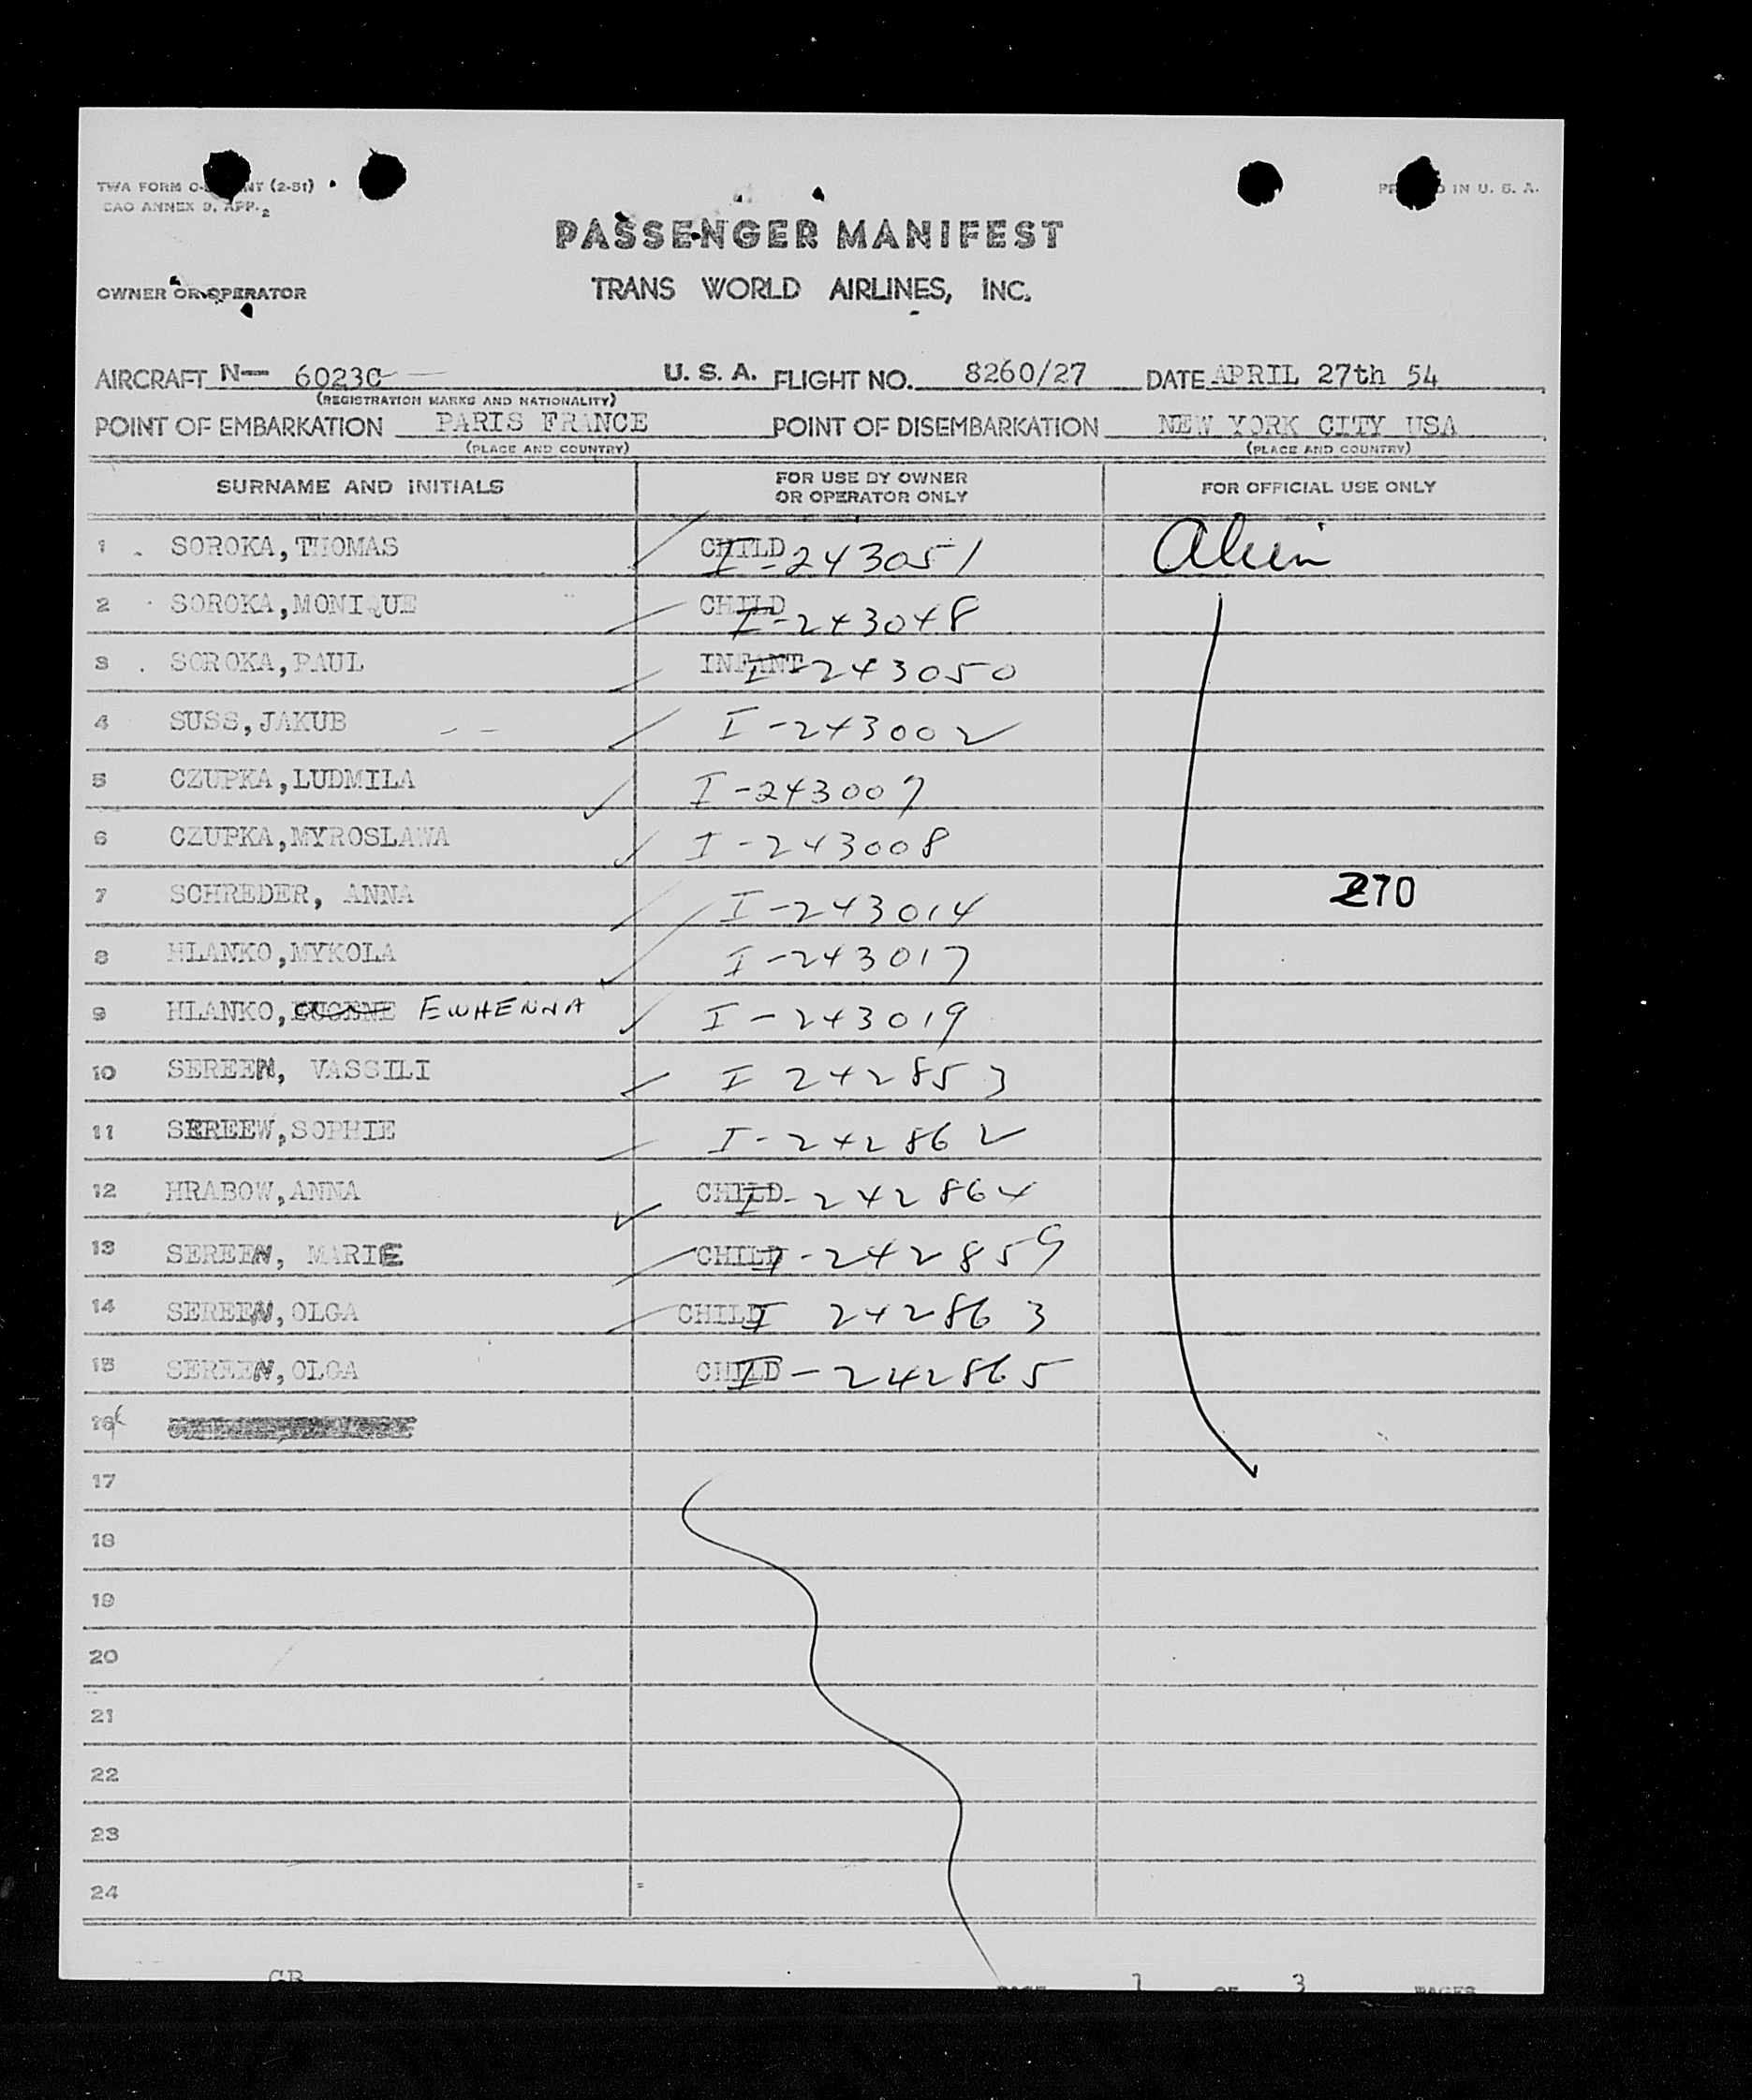 TWA FORM C- NT (2-51)
CAO ANNEX 9, APP. 2
IN U. S. A.
PASSENGER MANIFEST
OWNER OR OPERATOR
TRANS WORLD AIRLINES, INC.
AIRCRAFT N— 6023C U. S. A. FLIGHT NO. 8260/27 DATE APRIL 27th 54
(REGISTRATION MARKS AND NATIONALITY)
POINT OF EMBARKATION PARIS FRANCE POINT OF DISEMBARKATION NEW YORK CITY USA
(PLACE AND COUNTRY) (PLACE AND COUNTRY)
SURNAME AND INITIALS FOR USE BY OWNER OR OPERATOR ONLY FOR OFFICIAL USE ONLY
1 SOROKA, THOMAS CHILD I-243051 Alien
2 SOROKA, MONIQUE CHILD I-243048
3 SOROKA, PAUL INFANT I-243050
4 SUSS, JAKUB I-243002
5 CZUPKA, LUDMILA I-243007
6 CZUPKA, MYROSLAWA I-243008
7 SCHREDER, ANNA I-243014 270
8 HLANKO, MYKOLA I-243017
9 HLANKO, EUGENE EWHENNA I-243019
10 SEREEN, VASSILI I 242853
11 SEREEW, SOPHIE I-242862
12 HRABOW, ANNA CHILD I-242864
13 SEREEN, MARIE CHILD I-242859
14 SEREEN, OLGA CHILD I 242863
15 SEREEN, OLGA CHILD I-242865
16
17
18
19
20
21
22
23
24
GB PAGE 1 OF 3 PAGES